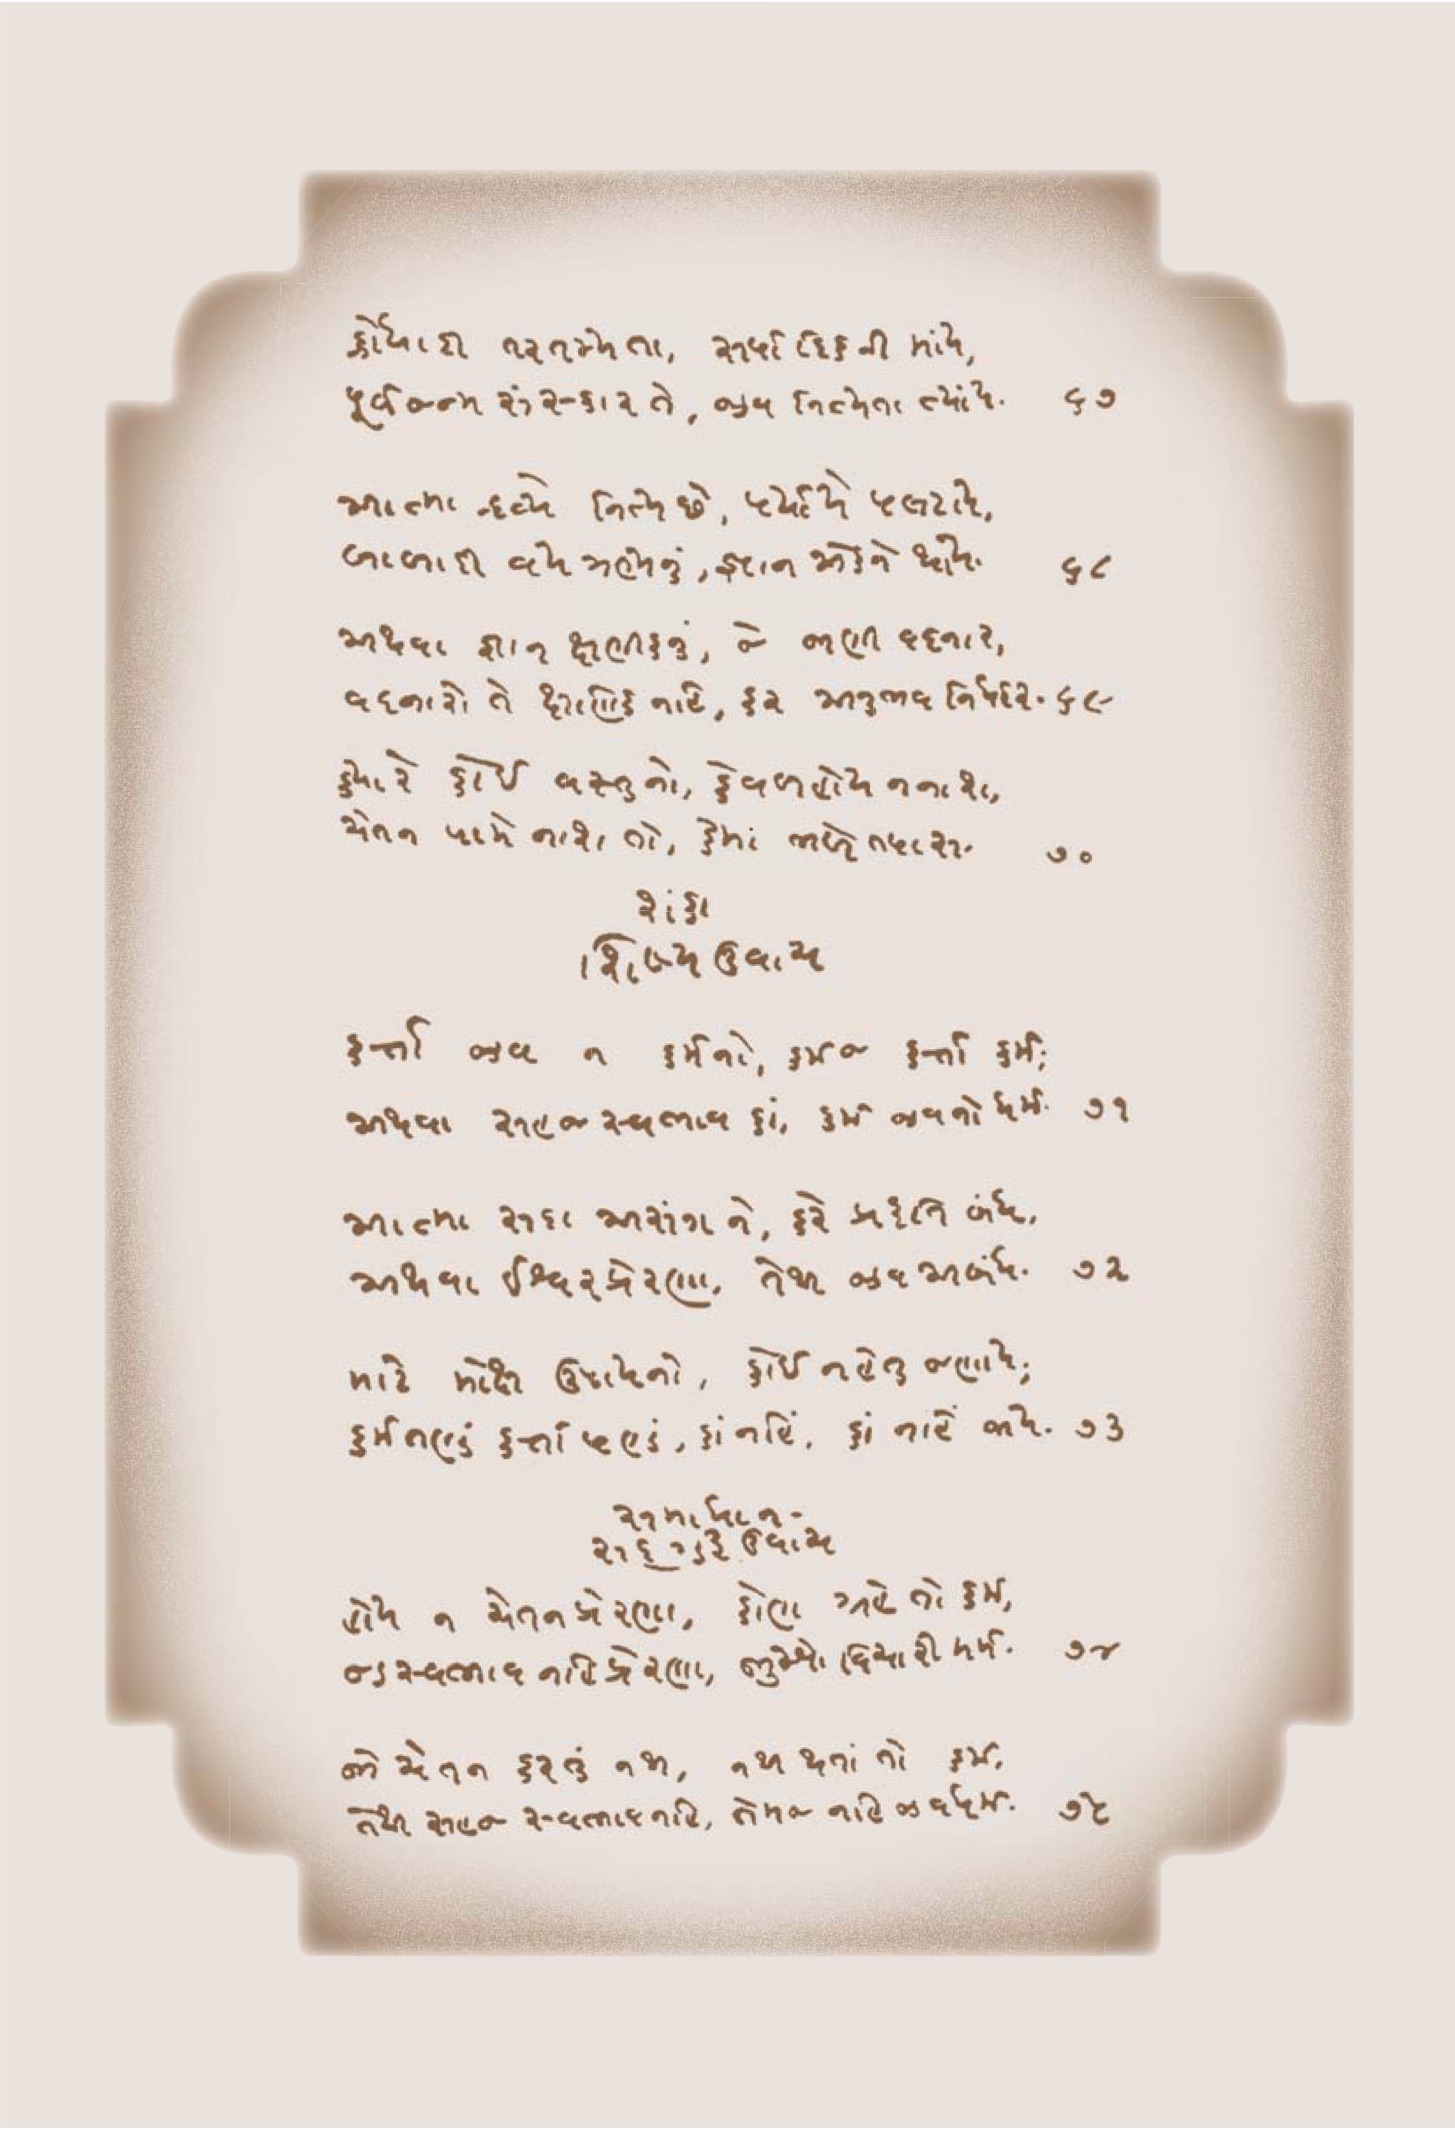 ક્રોધાદી તરતમ્યતા, સર્પાદિકની માંય,
પૂર્વજન્મ સંસ્કાર તે, જીવ નિત્યતા ત્યાંય. ૬૭
આત્મા દ્રવ્યે નિત્ય છે, પર્યાયે પલટાય,
બાળાદી વય ત્રણ્યનું, જ્ઞાન એકને થાય. ૬૮
અથવા જ્ઞાન ક્ષણીકનું, જે જાણી વદનાર,
વદનારો તે ક્ષણિક નહિ, કર અનુભવ નિર્ધાર. ૬૯
ક્યારે કોઈ વસ્તુનો, કેવળ હોય ન નાશ,
ચેતન પામે નાશ તો, કેમાં ભળે તપાસ. ૭૦
શંકા
શિષ્ય ઉવાચ
કર્ત્તા જીવ ન કર્મનો, કર્મ જ કર્ત્તા કર્મ;
અથવા સહજ સ્વભાવ કાં, કર્મ જીવનો ધર્મ. ૭૧
આત્મા સદા અસંગ ને, કરે પ્રકૃતિ બંધ,
અથવા ઈશ્વર પ્રેરણા, તેથી જીવ અબંધ. ૭૨
માટે મોક્ષ ઉપાયનો, કોઈ ન હેતુ જણાય;
કર્મતણું કર્ત્તાપણું, કાં નહિં, કાં નહિં જાય. ૭૩
સમાધાન-
સદ્ગુરુ ઉવાચ
હોય ન ચેતન પ્રેરણા, કોણ ગ્રહે તો કર્મ,
જડસ્વભાવ નહિ પ્રેરણા, જુઓ વિચારી મર્મ. ૭૪
જો ચેતન કરતું નથી, નથી થતાં તો કર્મ,
તેથી સહજ સ્વભાવ નહિ, તેમજ નહિ જીવધર્મ. ૭૫